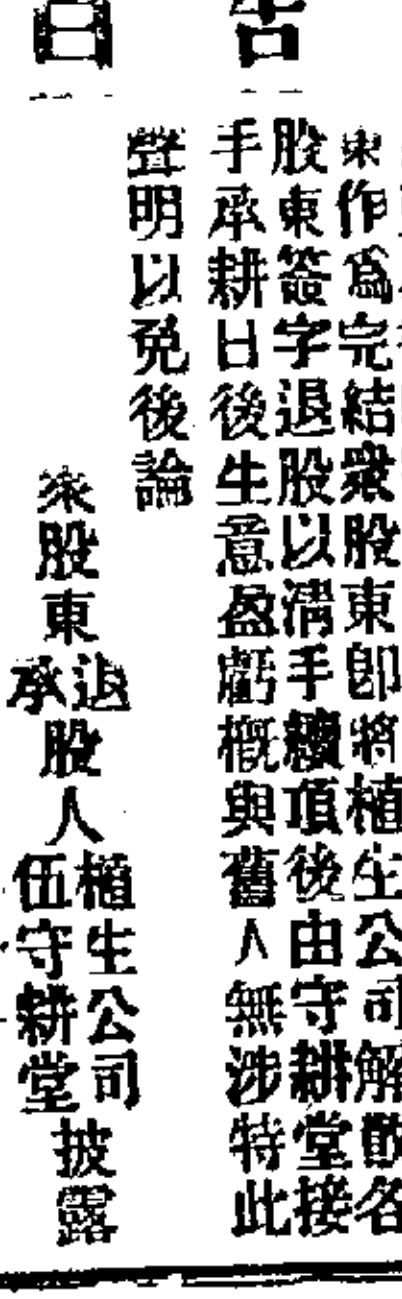 告白
東作為完結衆股東卽將植生公司解散各
股東簽字退股以清手續頂後由守耕堂接
手承耕日後生意盈虧概與舊人無涉特此
聲明以免後論
衆股東退承股人植生公司伍守耕堂披露